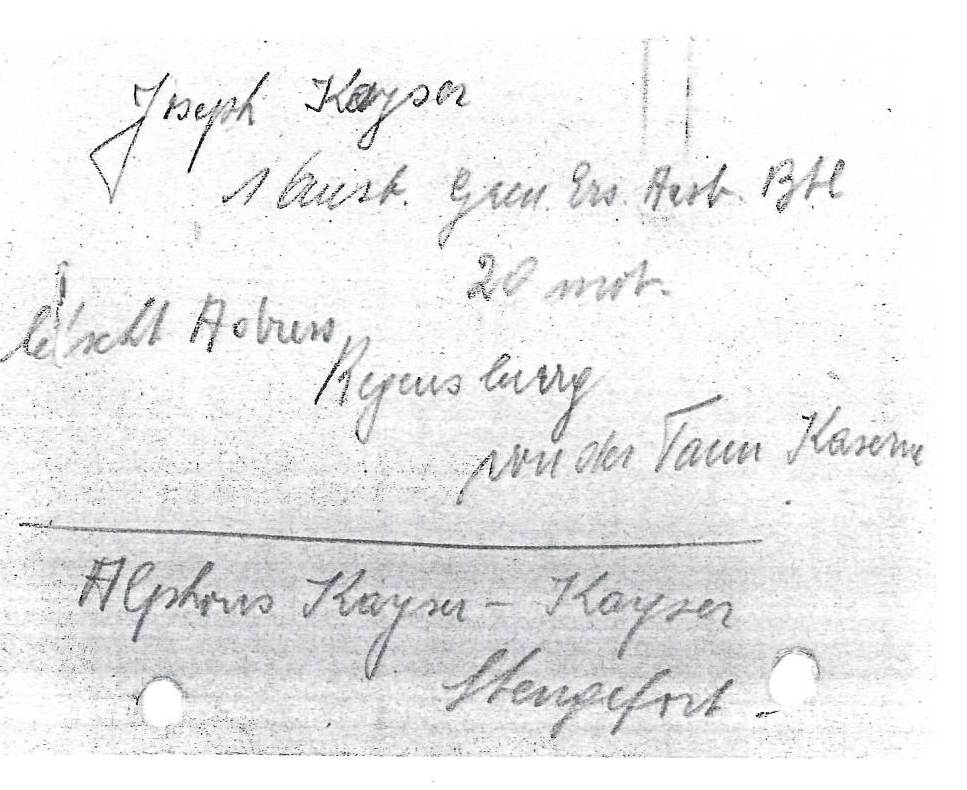 Joseph Kayser
1 Gren. Ers. Ausb. Btl
20 mot.
lëscht Adress
Regensburg
von der Tann Kaserne
Alphons Kayser - Kayser
Stengefort